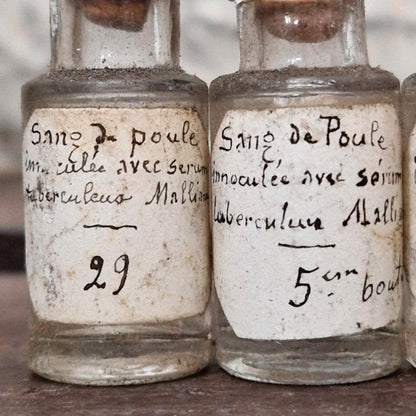 Sang de poule
innoculée avec serum
tuberculeus Malli
29
Sang de Poule
innoculée avec sérum
tuberculeus Malli
5em bout